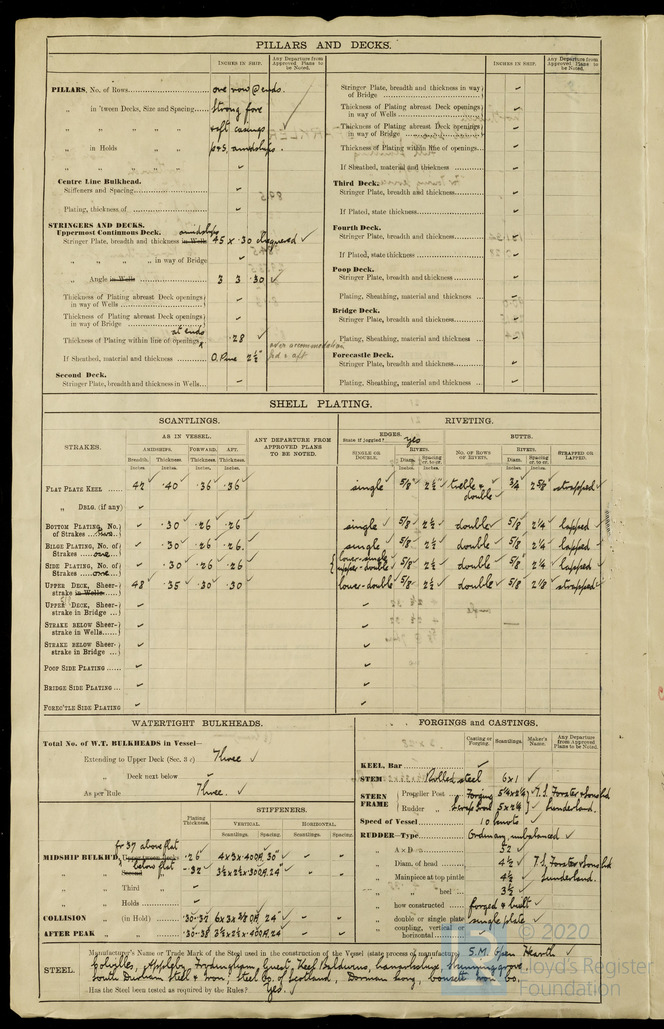 PILLARS AND DECKS.
INCHES IN SHIP.
Any Departure from Approved Plans to be Noted.
PILLARS, No. of Rows one row @ ends.
„ in 'tween Decks, Size and Spacing strong fore
„ „ „ „ & aft casings
„ in Holds „ „ p & s. amidships.
„ „ „ „ -
Centre Line Bulkhead.
Stiffeners and Spacing -
Plating, thickness of -
STRINGERS AND DECKS.
Uppermost Continuous Deck. amidships
Stringer Plate, breadth and thickness in Wells 45 x .30 chequered ✓
„ „ „ „ in way of Bridge -
„ Angle in Wells 3 3 .30 ✓
Thickness of Plating abreast Deck openings in way of Wells -
Thickness of Plating abreast Deck openings in way of Bridge -
at ends
Thickness of Plating within line of openings .28 ✓
If Sheathed, material and thickness O. Pine 2½" over accommodation fwd & aft
Second Deck.
Stringer Plate, breadth and thickness in Wells -
INCHES IN SHIP.
Any Departure from Approved Plans to be Noted.
Stringer Plate, breadth and thickness in way of Bridge -
Thickness of Plating abreast Deck openings in way of Wells -
Thickness of Plating abreast Deck openings in way of Bridge -
Thickness of Plating within line of openings -
If Sheathed, material and thickness -
Third Deck.
Stringer Plate, breadth and thickness -
If Plated, state thickness -
Fourth Deck.
Stringer Plate, breadth and thickness -
If Plated, state thickness -
Poop Deck.
Stringer Plate, breadth and thickness -
Plating, Sheathing, material and thickness -
Bridge Deck.
Stringer Plate, breadth and thickness -
Plating, Sheathing, material and thickness -
Forecastle Deck.
Stringer Plate, breadth and thickness -
Plating, Sheathing, material and thickness -
SHELL PLATING.
SCANTLINGS.
RIVETING.
STRAKES.
AS IN VESSEL.
AMIDSHIPS. FORWARD. AFT.
Breadth. Thickness. Thickness. Thickness.
Inches. Inches. Inches. Inches.
ANY DEPARTURE FROM APPROVED PLANS TO BE NOTED.
EDGES.
State if joggled? yes
SINGLE OR DOUBLE.
RIVETS.
Diam. Spacing cr. to cr.
Inches. Inches.
BUTTS.
No. OF ROWS OF RIVETS.
RIVETS.
Diam. Spacing cr. to cr.
Inches. Inches.
STRAPPED OR LAPPED.
FLAT PLATE KEEL 42 .40 .36 .36 single 5/8" 2½" treble & double 3/4 2 5/8 strapped
„ DBLG. (if any) -
BOTTOM PLATING, No. of Strakes .30 .26 .26 single 5/8 2½ double 5/8 2¼ lapped
BILGE PLATING, No. of Strakes one .30 .26 .26 single 5/8 2½ double 5/8 2¼ lapped
SIDE PLATING, No. of Strakes one .30 .26 .26 lower-single upper-double 5/8 2½ double 5/8 2¼ lapped
UPPER DECK, Sheerstrake in Wells 48 .35 .30 .30 lower-double 5/8 2½ double 5/8 2 1/8 strapped
UPPER DECK, Sheerstrake in Bridge -
STRAKE BELOW Sheerstrake in Wells -
STRAKE BELOW Sheerstrake in Bridge -
POOP SIDE PLATING -
BRIDGE SIDE PLATING -
FOREC'TLE SIDE PLATING -
WATERTIGHT BULKHEADS.
Total No. of W.T. BULKHEADS in Vessel—
Extending to Upper Deck (Sec. 3 c) Three ✓
„ Deck next below -
As per Rule Three. ✓
Plating Thickness.
STIFFENERS.
VERTICAL. HORIZONTAL.
Scantlings. Spacing. Scantlings. Spacing.
fr 37 above flat
MIDSHIP BULKH'D, Upper tween decks .26 4x3x.40 BA 30" - -
below flat
„ Second „ .32 24" - -
„ Third „
„ Holds -
COLLISION „ (in Hold) .30-.32 24" - -
AFTER PEAK „ „ .30-.38 24 - -
FORGINGS and CASTINGS.
Casting or Forging.
Scantlings.
Maker's Name.
Any Departure from Approved Plans to be Noted.
KEEL, Bar -
STEM Rolled steel 6x1 ✓
STERN FRAME
Propeller Post Forging 5¼x2¼ T.S. Forster & Sons Ltd
Rudder „ Scrap Iron 5x2¼ Sunderland.
Speed of Vessel 10 knots ✓
RUDDER—Type Ordinary, unbalanced ✓
„ A x D 52 ✓
„ Diam. of head 4½ ✓ T.S. Forster & Sons Ltd
„ Mainpiece at top pintle 4½ Sunderland.
„ „ heel 3½
„ how constructed forged & built ✓
„ double or single plate single plate ✓
„ coupling, vertical or horizontal
STEEL.
Manufacturer's Name or Trade Mark of the Steel used in the construction of the Vessel (state process of manufacture) S.M. Open Hearth ✓
Colvilles, Appleby Frodingham, Guest, Keen Baldwins, Lanarkshire, Skinningrove,
South Durham Steel & Iron, Steel Co. of Scotland, Dorman Long, Consett Iron Co.
Has the Steel been tested as required by the Rules? Yes.
© 2020
Lloyd's Register
Foundation